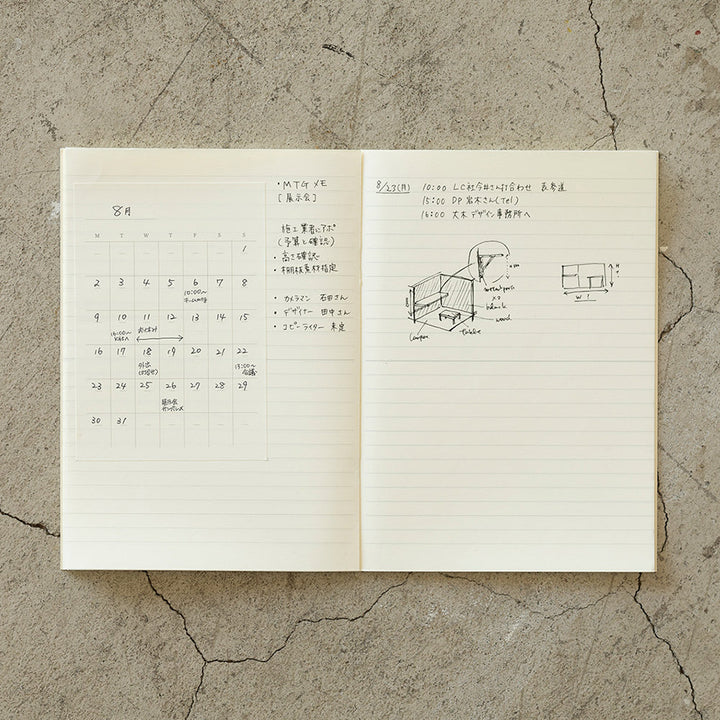 8月
M T W T F S S
1
2 3 4 5 6 7 8
10:00〜
9 10 11 12 13 14 15
16 17 18 19 20 21 22
13:00〜
会議
23 24 25 26 27 28 29
30 31
・MTGメモ
[展示会]
施工業者にアポ
(予算と確認)
・高さ確認
・棚板素材指定
・カメラマン 石田さん
・デザイナー 田中さん
・コピーライター 未定
8/23(月) 10:00 LC社今井さん打合わせ 表参道
15:00 DP岩木さん(Tel)
16:00 大木デザイン事務所へ
black
wood
table
H
W